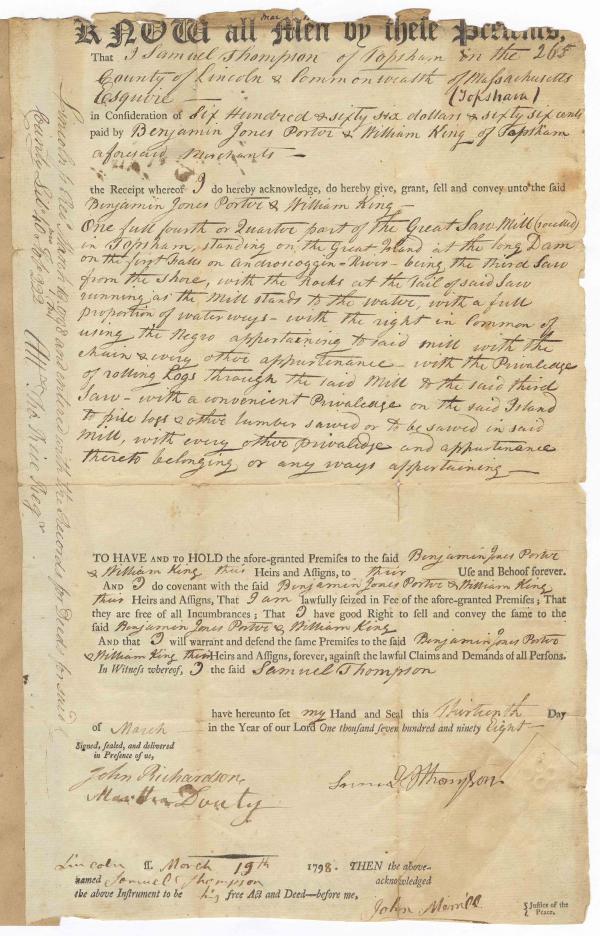 KNOW all Men by these Presents,
That I Samuel Thompson of Topsham in the 265
County of Lincoln & Commonwealth of Massachusetts
Esquire — (Topsham)
in Consideration of Six Hundred & sixty six dollars & sixty six cents
paid by Benjamin Jones Porter & William King of Topsham
aforesaid Merchants —
the Receipt whereof I do hereby acknowledge, do hereby give, grant, sell and convey unto the said
Benjamin Jones Porter & William King —
One full fourth or Quarter part of the Great Saw Mill (so called)
in Topsham, standing on the Great Island at the long Dam
on the first falls on Androscoggin River being the third Saw
from the shore, with the Rocks at the Tail of said Saw
running as the Mill stands to the water, with a full
proportion of water ways — with the right in Common of
using the Negro appertaining to said mill with the
chain & every other appurtinance — with the Priviledge
of rolling Logs through the said Mill to the said third
Saw — with a convenient Priviledge on the said Island
to pile logs & other lumber sawed or to be sawed in said
Mill, with every other privalidge and appurtinance
thereto belonging or any ways appertaining —
TO HAVE AND TO HOLD the afore-granted Premises to the said Benjamin Jones Porter
& William King their Heirs and Assigns, to their Use and Behoof forever.
AND I do covenant with the said Benjamin Jones Porter & William King
their Heirs and Assigns, That I am lawfully seized in Fee of the afore-granted Premises; That
they are free of all Incumbrances; That I have good Right to sell and convey the same to the
said Benjamin Jones Porter & William King
AND that I will warrant and defend the same Premises to the said Benjamin Jones Porter
& William King their Heirs and Assigns, forever, against the lawful Claims and Demands of all Persons.
In Witness whereof, I the said Samuel Thompson
have hereunto set my Hand and Seal this Thirteenth Day
of March in the Year of our Lord One thousand seven hundred and ninety Eight —
Signed, sealed, and delivered
in Presence of us,
John Richardson
Martha Douty
Samel Thompson
Lincoln ss. March 19th 1798. THEN the above-
named Samuel Thompson acknowledged
the above Instrument to be his free Act and Deed—before me,
John Merrill Justice of the
Peace.
Lincoln ss Rec'd March 1798 and entered with the Records for Deeds for said
County Lib. 40 Fol. 222
Att